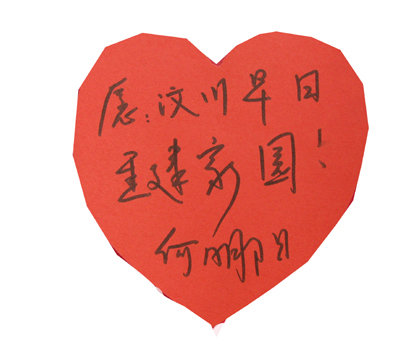 愿:汶川早日
重建家园!
何